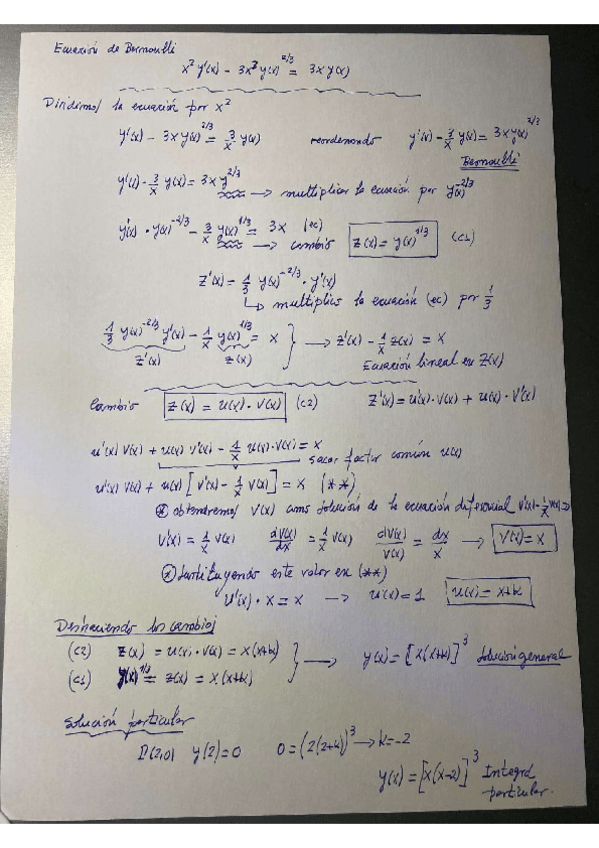 Ecuación de Bernoulli
x² y'(x) - 3x³ y(x)^2/3 = 3x y(x)
Dividimos la ecuación por x²
y'(x) - 3x y(x)^2/3 = 3/x y(x) reordenando y'(x) - 3/x y(x) = 3x y(x)^2/3
Bernoulli
y'(x) - 3/x y(x) = 3x y^2/3 → multiplicar la ecuación por y(x)^-2/3
y'(x) · y(x)^-2/3 - 3/x y(x)^1/3 = 3x (ec) → cambio z(x) = y(x)^1/3 (c1)
z'(x) = 1/3 y(x)^-2/3 · y'(x)
↳ multiplico la ecuación (ec) por 1/3
1/3 y(x)^-2/3 y'(x) - 1/x y(x)^1/3 = x } → z'(x) - 1/x z(x) = x
z'(x) z(x) Ecuación lineal en z(x)
Cambio z(x) = u(x) · v(x) (c2) z'(x) = u'(x) · v(x) + u(x) · v'(x)
u'(x) v(x) + u(x) v'(x) - 1/x u(x) · v(x) = x
sacar factor común u(x)
u'(x) v(x) + u(x) [v'(x) - 1/x v(x)] = x (**)
* obtendremos v(x) como solución de la ecuación diferencial v'(x) - 1/x v(x) = 0
v'(x) = 1/x v(x) dv(x)/dx = 1/x v(x) dv(x)/v(x) = dx/x → v(x) = x
* Sustituyendo este valor en (**)
u'(x) · x = x → u'(x) = 1 u(x) = x+k
Deshaciendo los cambios
(c2) z(x) = u(x) · v(x) = x(x+k) } → y(x) = [x(x+k)]³ Solución general
(c1) y(x)^1/3 = z(x) = x(x+k)
Solución particular
P(2,0) y(2) = 0 0 = (2(2+k))³ → k = -2
y(x) = [x(x-2)]³ Integral
particular.